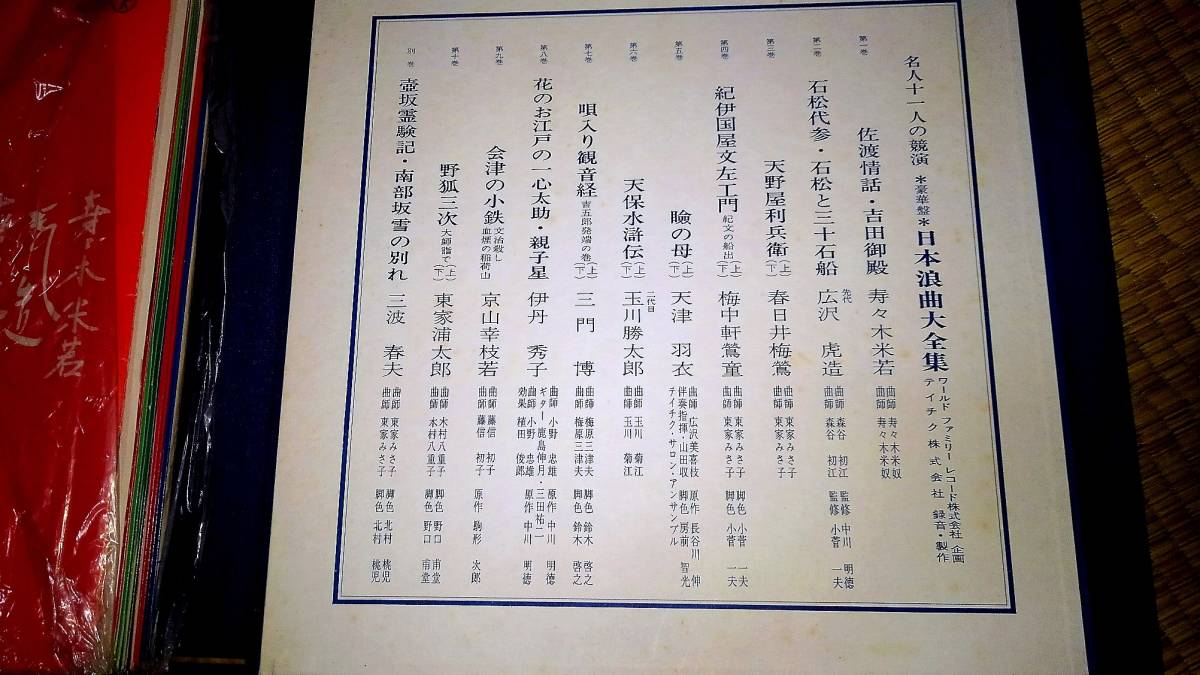 名人十一人の競演 *豪華盤* 日本浪曲大全集 ワールド ファミリー レコード株式会社 企画
テイチク株式会社 録音・製作
第一巻 佐渡情話・吉田御殿 寿々木米若 曲師 寿々木米奴
第二巻 石松代参・石松と三十石船 先代 広沢 虎造 曲師 森谷 初江 監修 中川 明徳
曲師 森谷 初江 監修 小菅 一夫
第三巻 天野屋利兵衛(上)(下) 春日井梅鶯 曲師 東家みさ子
曲師 東家みさ子
第四巻 紀伊国屋文左エ門 紀文の船出(上)(下) 梅中軒鶯童 曲師 東家みさ子 脚色 小菅 一夫
曲師 東家みさ子 脚色 小菅 一夫
第五巻 瞼の母(上)(下) 天津 羽衣 曲師 広沢美喜枝 原作 長谷川 伸
伴奏指揮・山田収 脚色 房前 智光
テイチク・サロン・アンサンブル
第六巻 天保水滸伝(上)(下) 二代目 玉川勝太郎 曲師 玉川 菊江
曲師 玉川 菊江
第七巻 唄入り観音経 吉五郎発端の巻(上)(下) 三門 博 曲師 梅原三津夫 脚色 鈴木 啓之
曲師 梅原三津夫 脚色 鈴木 啓之
第八巻 花のお江戸の一心太助・親子星 伊丹 秀子 曲師 小野 忠雄 原作 中川 明徳
ギター 鹿島伸月・三田祐二
曲師 小野 忠雄 原作 中川 明徳
効果 植田 俊郎
第九巻 会津の小鉄 文治殺し 血煙の稲荷山 京山幸枝若 曲師 藤信 初子 原作 駒形 次郎
曲師 藤信 初子
第十巻 野狐三次 大師詣で(上)(下) 東家浦太郎 曲師 木村八重子 脚色 野口 甫堂
曲師 木村八重子 脚色 野口 甫堂
別巻 壺坂霊験記・南部坂雪の別れ 三波 春夫 曲師 東家みさ子 脚色 北村 桃児
曲師 東家みさ子 脚色 北村 桃児
寿々木米若